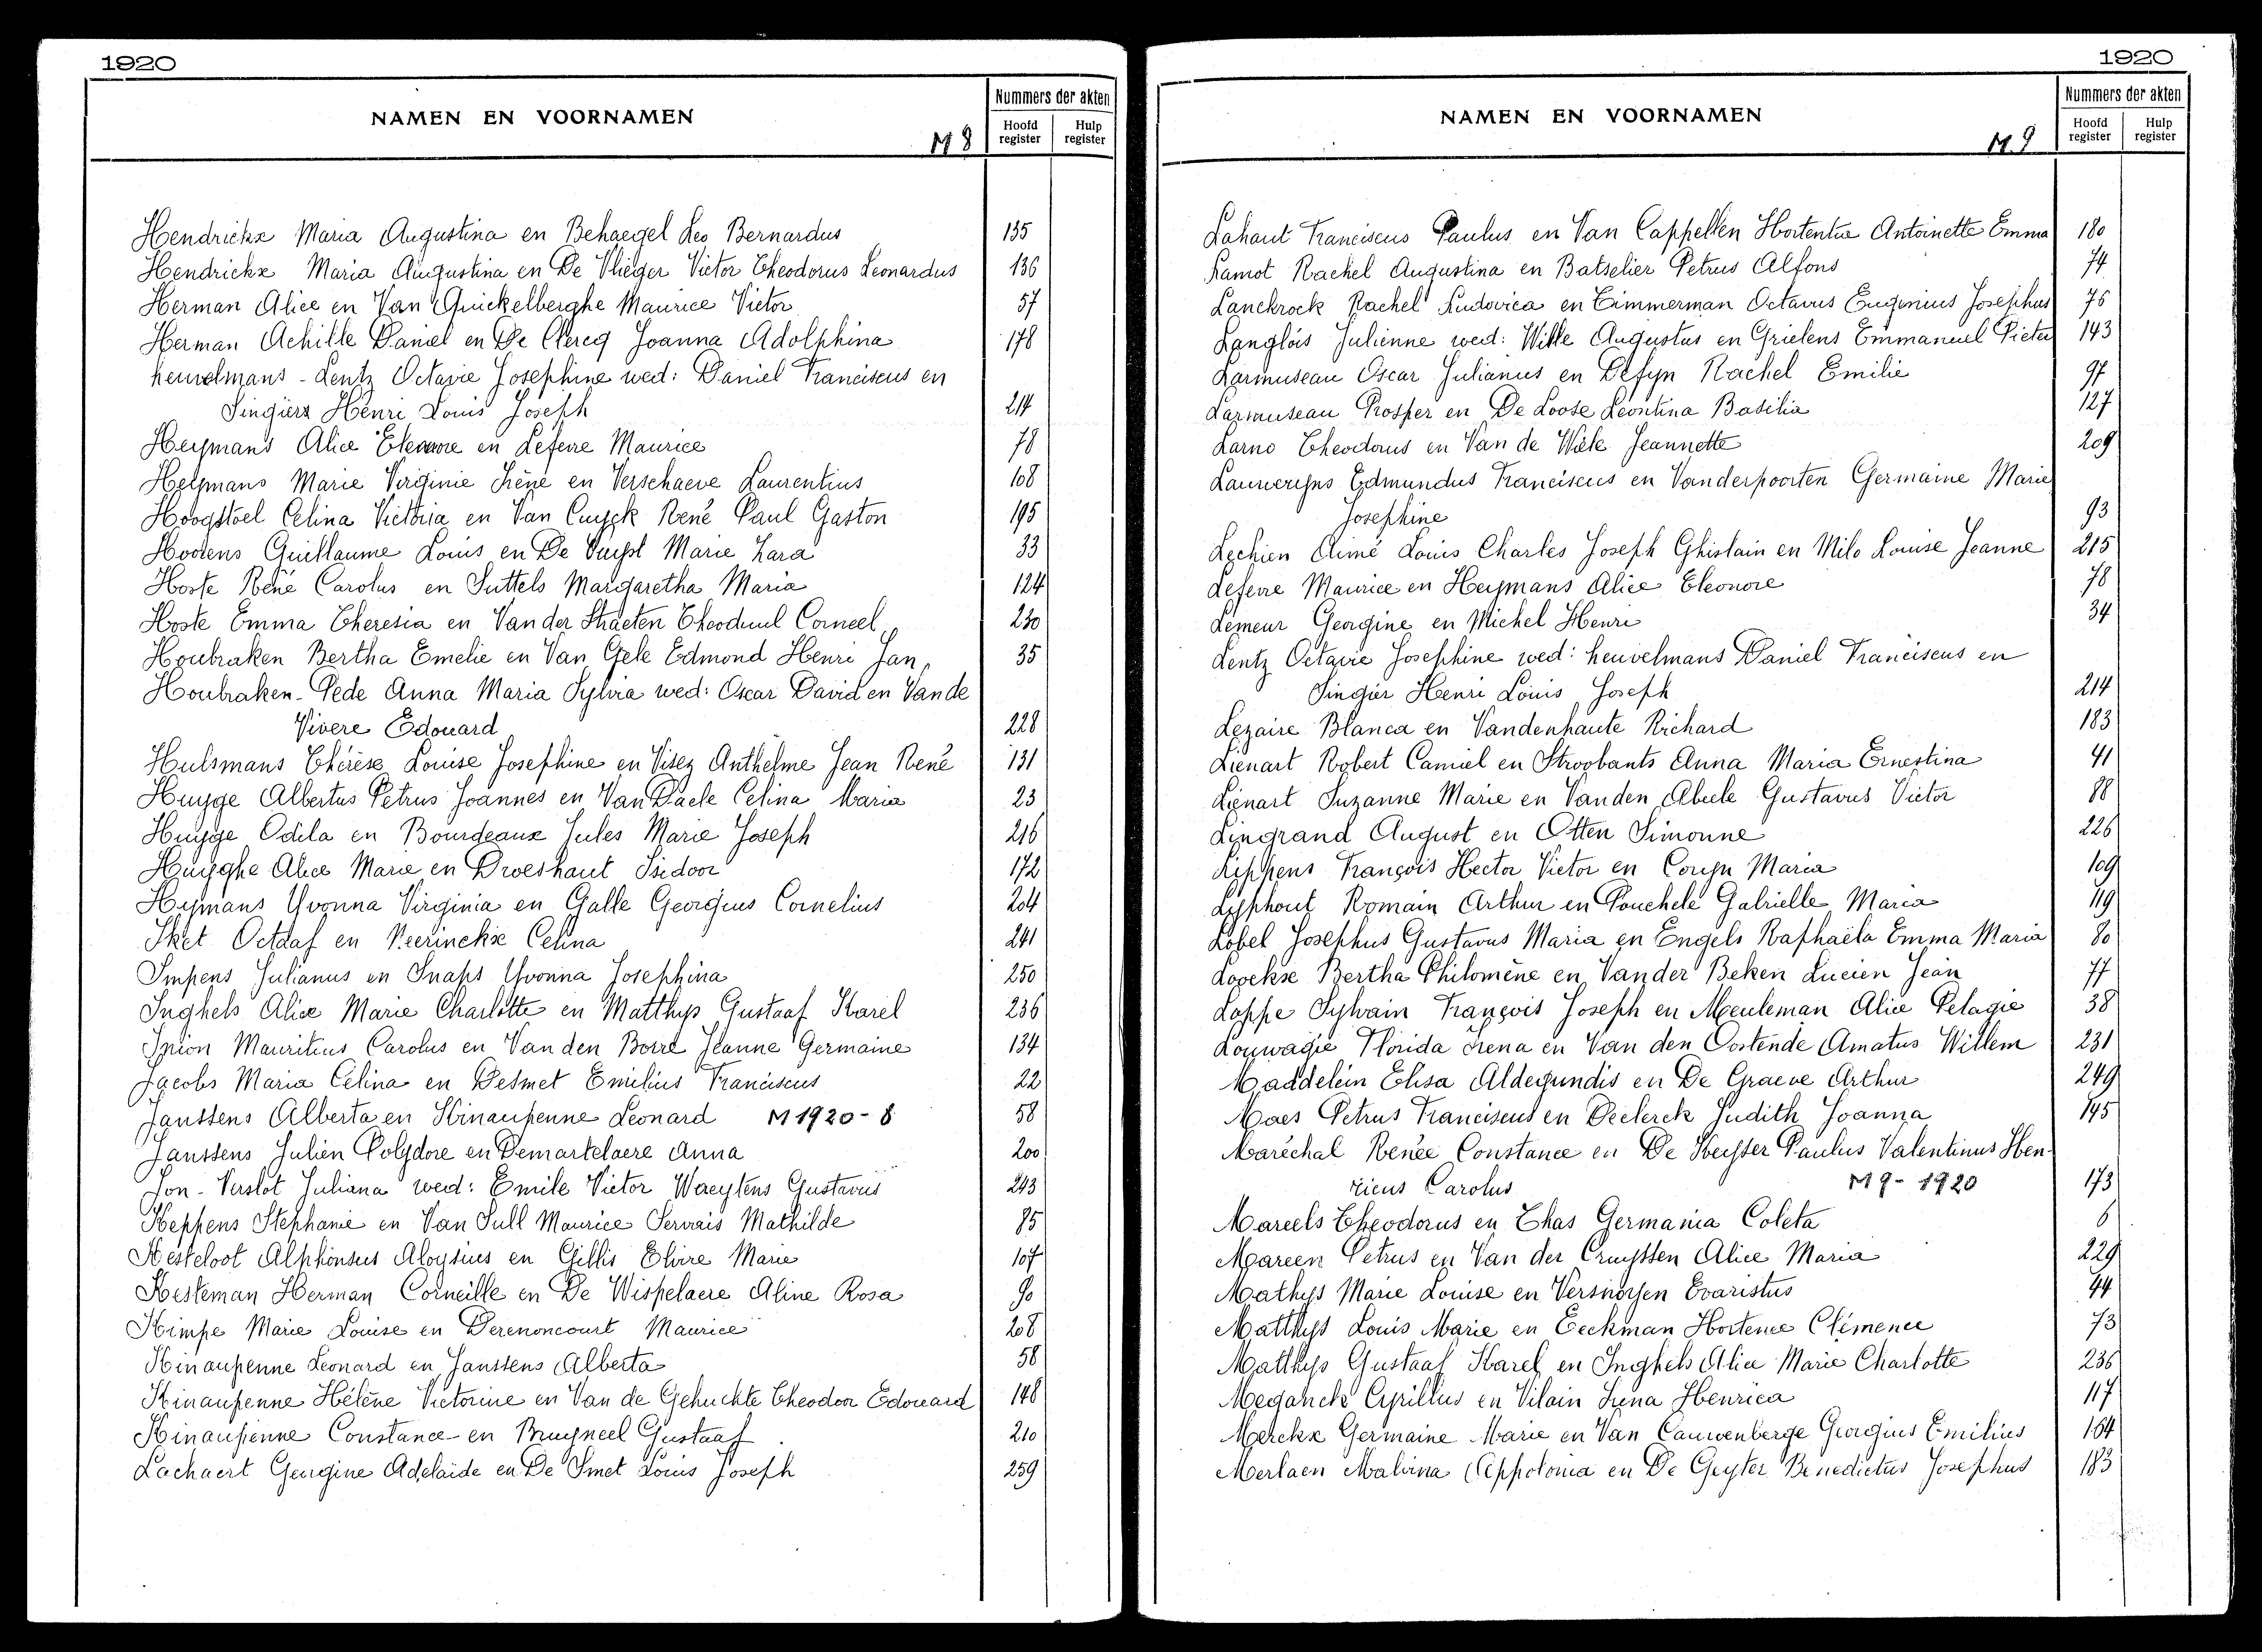 1920
NAMEN EN VOORNAMEN
M 8
Nummers der akten
Hoofd register
Hulp register
Hendrickx Maria Augustina en Behaegel Leo Bernardus 135
Hendrickx Maria Augustina en De Vlieger Victor Theodorus Leonardus 136
Herman Alice en Van Quickelberghe Maurice Victor 57
Herman Achille Daniel en De Clercq Joanna Adolphina 178
heuvelmans - Lentz Octavie Josephine wed: Daniel Franciscus en
Singier Henri Louis Joseph 214
Heymans Alice Eleonore en Lefevre Maurice 78
Heymans Marie Virginie Irène en Verschaeve Laurentius 108
Hoogstoel Celina Victoria en Van Cuyck René Paul Gaston 195
Hoorens Guillaume Louis en De Vuyst Marie Zara 33
Hoste René Carolus en Suttels Margaretha Maria 124
Hoste Emma Theresia en Van der Straeten Theoduul Corneel 230
Houbraken Bertha Emelie en Van Gele Edmond Henri Jan 35
Houbraken - Pede Anna Maria Sylvia wed: Oscar David en Van de
Vivere Edouard 228
Hulsmans Thérèse Louise Josephine en Visez Anthelme Jean René 131
Huyge Albertus Petrus Joannes en Van Daele Celina Maria 23
Huyge Odila en Bourdeaux Jules Marie Joseph 216
Huyghe Alice Marie en Droeshaut Isidoor 172
Hymans Yvonna Virginia en Galle Georgius Cornelius 204
Iket Octaaf en Neerinckx Celina 241
Impens Julianus en Snaps Yvonna Josephina 250
Inghels Alice Marie Charlotte en Matthys Gustaaf Karel 236
Inion Mauritius Carolus en Van den Borre Jeanne Germaine 134
Jacobs Maria Celina en Desmet Emilius Franciscus 22
Janssens Alberta en Kinaupenne Leonard M 1920 - 8 58
Janssens Julien Polydore en Demartelaere Anna 200
Jon - Verslot Juliana wed: Emile Victor Waeytens Gustavus 243
Keppens Stephanie en Van Sull Maurice Servais Mathilde 85
Kesteloot Alphonsus Aloysius en Gillis Elvire Marie 107
Kesteman Herman Corneille en De Wispelaere Aline Rosa 90
Kimpe Marie Louise en Derenoncourt Maurice 208
Kinaupenne Leonard en Janssens Alberta 58
Kinaupenne Hélène Victorine en Van de Gehuchte Theodoor Edouard 148
Kinaupenne Constance en Bruyneel Gustaaf 210
Lachaert Georgine Adelaïde en De Smet Louis Joseph 259
1920
NAMEN EN VOORNAMEN
M 9
Nummers der akten
Hoofd register
Hulp register
Lahaut Franciscus Paulus en Van Cappellen Hortentia Antoinette Emma 180
Lamot Rachel Augustina en Batselier Petrus Alfons 74
Lanckrock Rachel Ludovica en Timmerman Octavus Eugenius Josephus 76
Langlois Julienne wed: Wille Augustus en Grielens Emmanuel Pieter 143
Larmuseau Oscar Julianus en Defyn Rachel Emilie 97
Larmuseau Prosper en De Loose Leontina Basilia 127
Larno Theodorus en Van de Wiele Jeannette 209
Lauweryns Edmundus Franciscus en Vanderpoorten Germaine Marie
Josephine 93
Lechien Aimé Louis Charles Joseph Ghislain en Milo Louise Jeanne 215
Lefevre Maurice en Heymans Alice Eleonore 78
Lemeur Georgine en Michel Henri 34
Lentz Octavie Josephine wed: heuvelmans Daniel Franciscus en
Singier Henri Louis Joseph 214
Lezaire Blanca en Vandenhaute Richard 183
Lienart Robert Camiel en Stroobants Anna Maria Ernestina 41
Lienart Suzanne Marie en Vanden Abeele Gustavus Victor 88
Lingrand August en Otten Simonne 226
Lippens François Hector Victor en Coryn Maria 109
Lyphout Romain Arthur en Pouchele Gabrielle Maria 119
Lobel Josephus Gustavus Maria en Engels Raphaëla Emma Maria 80
Loockx Bertha Philomène en Vander Beken Lucien Jean 77
Loppe Sylvain François Joseph en Meuleman Alice Pelagie 38
Louwagie Florida Irena en Van den Oostende Amatus Willem 231
Maddelein Elisa Aldegundis en De Graeve Arthur 249
Maes Petrus Franciscus en Declerck Judith Joanna 145
Maréchal Renée Constance en De Keyster Paulus Valentinus Hen-
ricus Carolus M 9 - 1920 173
Mareels Theodorus en Thas Germania Coleta 6
Mareen Petrus en Van der Cruyssen Alice Maria 229
Mathys Marie Louise en Versnoyen Evaristus 44
Matthys Louis Marie en Eeckman Hortence Clémence 73
Matthys Gustaaf Karel en Inghels Alice Marie Charlotte 236
Meganck Cyrillus en Vilain Irena Henrica 117
Merckx Germaine Marie en Van Cauwenberge Georgius Emilius 164
Merlaen Malvina Appolonia en De Geyter Benedictus Josephus 183